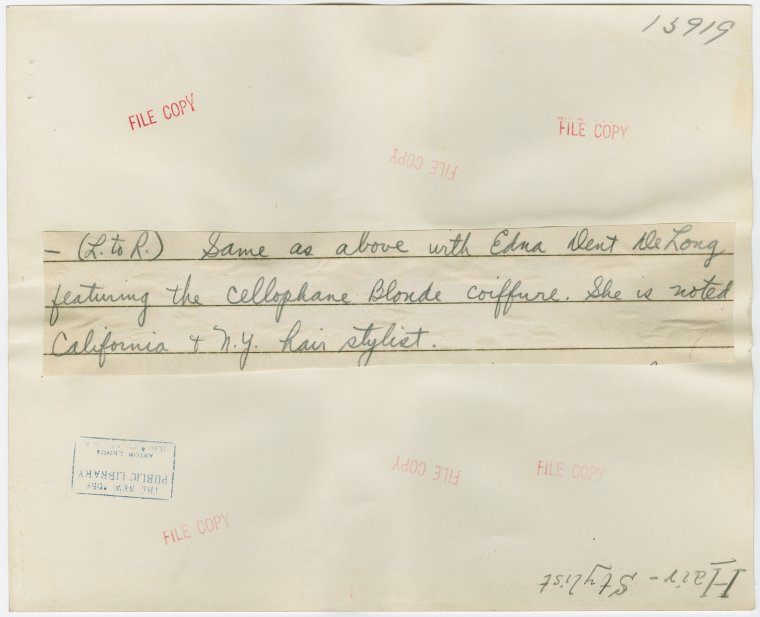 13919
FILE COPY
FILE COPY
FILE COPY
- (L. to R.) Same as above with Edna Dent DeLong
featuring the cellophane Blonde coiffure. She is noted
California + N.Y. hair stylist.
THE NEW YORK
PUBLIC LIBRARY
ASTOR LENOX
FILE COPY
FILE COPY
FILE COPY
Hair-Stylist